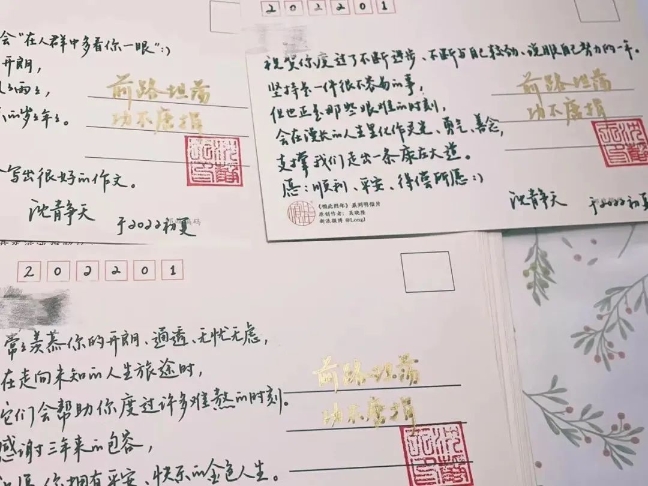 会“在人群中多看你一眼”:)
开朗,
前路坦荡
功不唐捐
写出很好的作文。
于2022初夏
祝贺你度过了不断进步、不断与自己较劲、说服自己努力的一年。
坚持每一件很不容易的事,
但也正是那些艰难的时刻,
会在漫长的人生里化作灵光、勇气、善念,
支撑我们走出一条康庄大道。
愿:顺利、平安、得偿所愿:)
前路坦荡
功不唐捐
于2022初夏
202201
常常羡慕你的开朗、通透、无忧无虑,
在走向未知的人生旅途时,
它们会帮助你度过许多难熬的时刻。
感谢三年来的包容,
你拥有平安、快乐的金色人生。
前路坦荡
功不唐捐